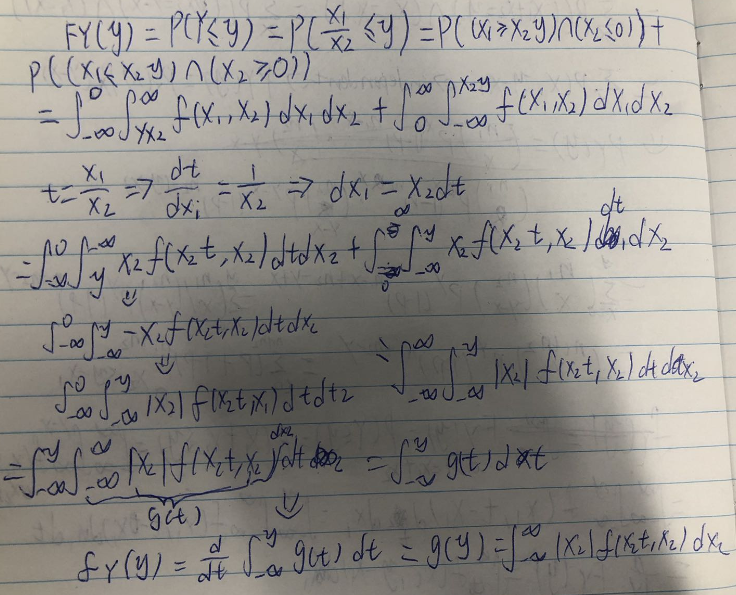 FY(y) = P(Y≤y) = P(x₁/x₂ ≤ y) = P((x₁≥x₂y)∩(x₂≤0)) +
P((x₁≤x₂y)∩(x₂≥0))
= ∫_{-∞}^{0} ∫_{yx₂}^{∞} f(x₁,x₂) dx₁ dx₂ + ∫_{0}^{∞} ∫_{-∞}^{x₂y} f(x₁,x₂) dx₁ dx₂
t = x₁/x₂ => dt/dx₁ = 1/x₂ => dx₁ = x₂dt
= ∫_{-∞}^{0} ∫_{y}^{-∞} x₂ f(x₂t, x₂) dt dx₂ + ∫_{0}^{∞} ∫_{-∞}^{y} x₂ f(x₂t, x₂) dt dx₂
⇓
∫_{-∞}^{0} ∫_{-∞}^{y} -x₂ f(x₂t, x₂) dt dx₂
⇓
∫_{-∞}^{0} ∫_{-∞}^{y} |x₂| f(x₂t, x₁) dt dt₂ = ∫_{-∞}^{∞} ∫_{-∞}^{y} |x₂| f(x₂t, x₂) dt dx₂
= ∫_{-∞}^{y} ∫_{-∞}^{∞} |x₂| f(x₂t, x₂) dx₂ dt = ∫_{-∞}^{y} g(t) dt
g(t) ⇓
fY(y) = d/dt ∫_{-∞}^{y} g(t) dt = g(y) = ∫_{-∞}^{∞} |x₂| f(x₂t, x₂) dx₂